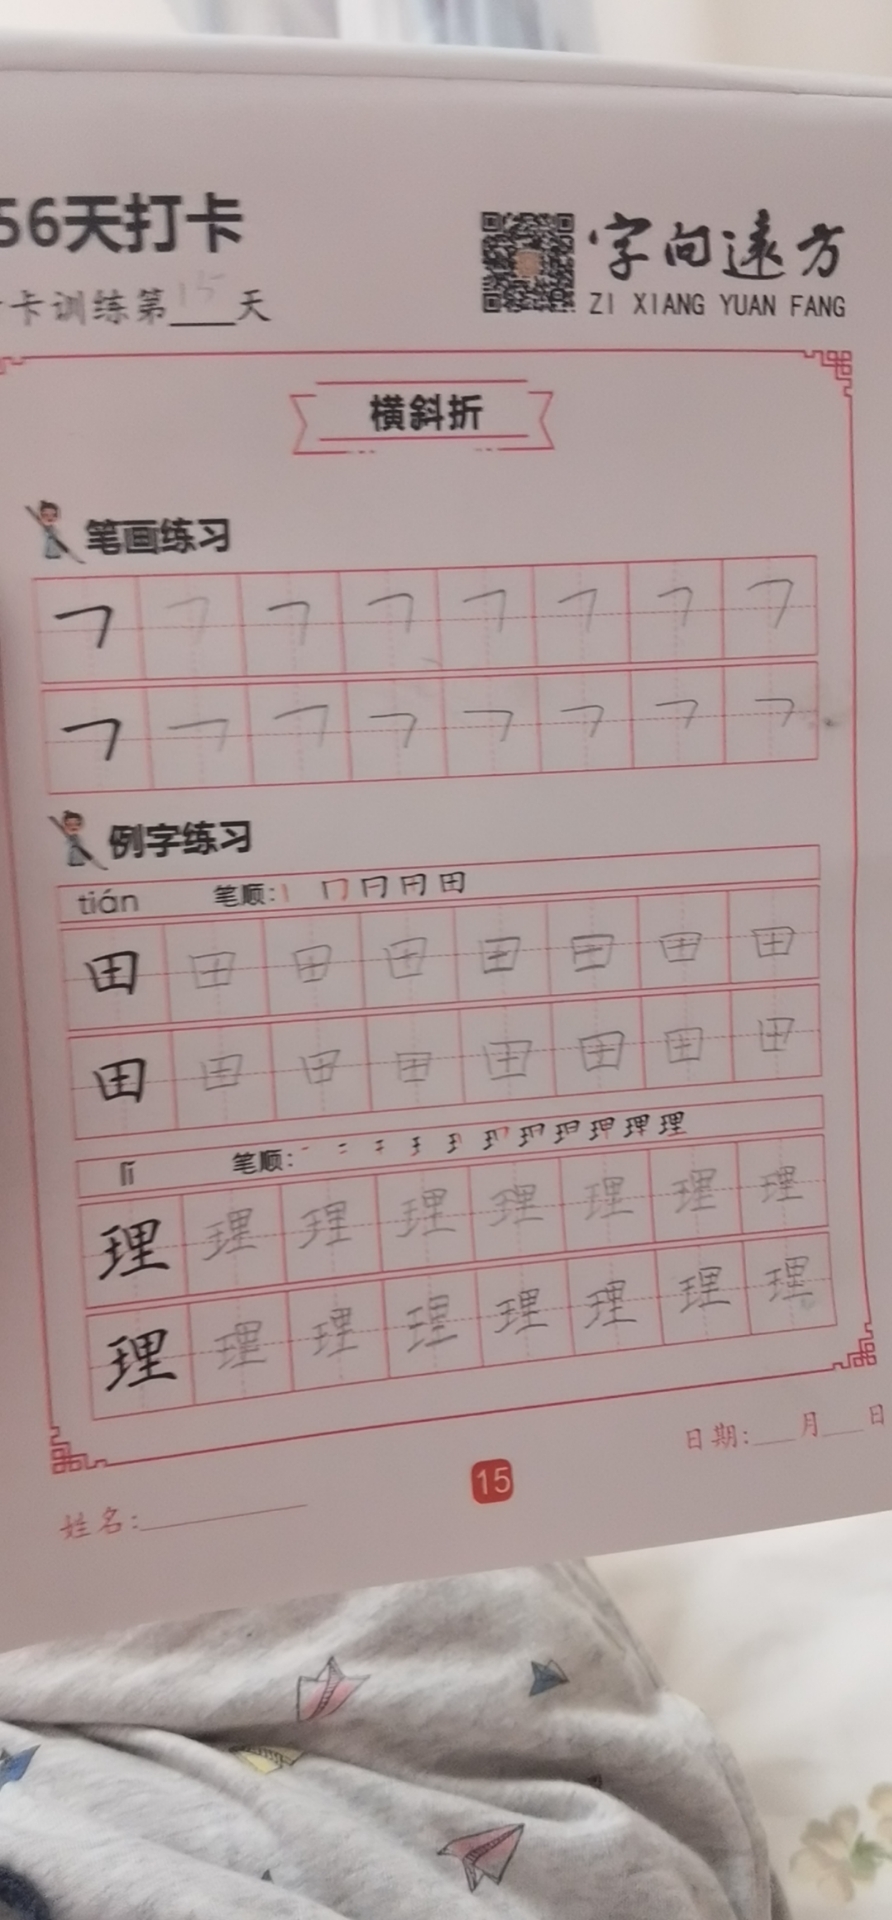 56天打卡
字向远方
ZI XIANG YUAN FANG
卡训练第15天
横斜折
笔画练习
㇇ ㇇ ㇇ ㇇ ㇇ ㇇ ㇇ ㇇
㇇ ㇇ ㇇ ㇇ ㇇ ㇇ ㇇ ㇇
例字练习
tián 笔顺: 丨 冂 日 田 田
田 田 田 田 田 田 田 田
田 田 田 田 田 田 田 田
lǐ 笔顺:
理 理 理 理 理 理 理 理
理 理 理 理 理 理 理 理
日期:___月___日
15
姓名: